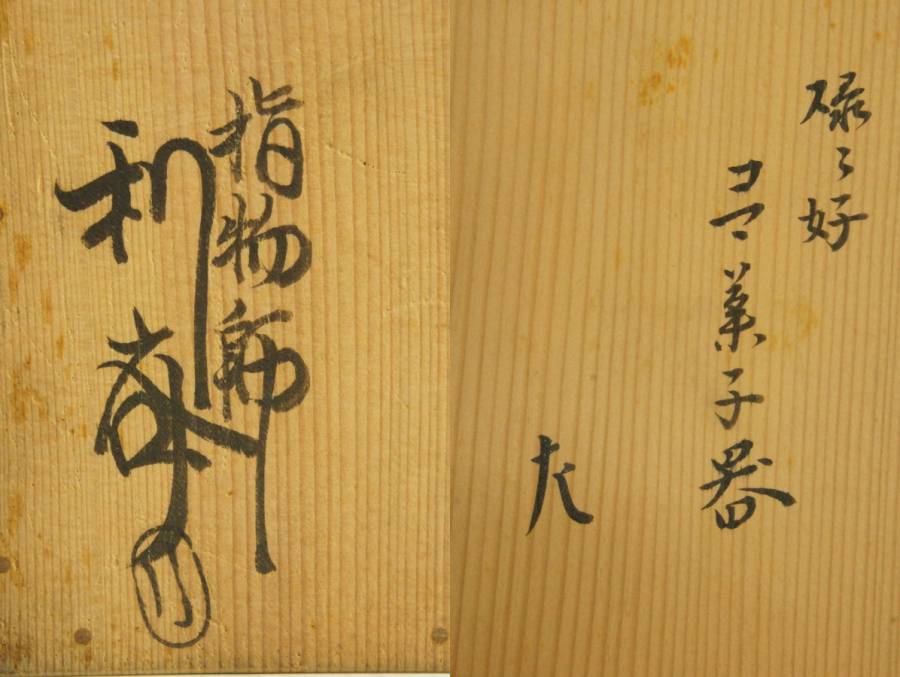 碌々好
コマ菓子器
左
指物師
利斎